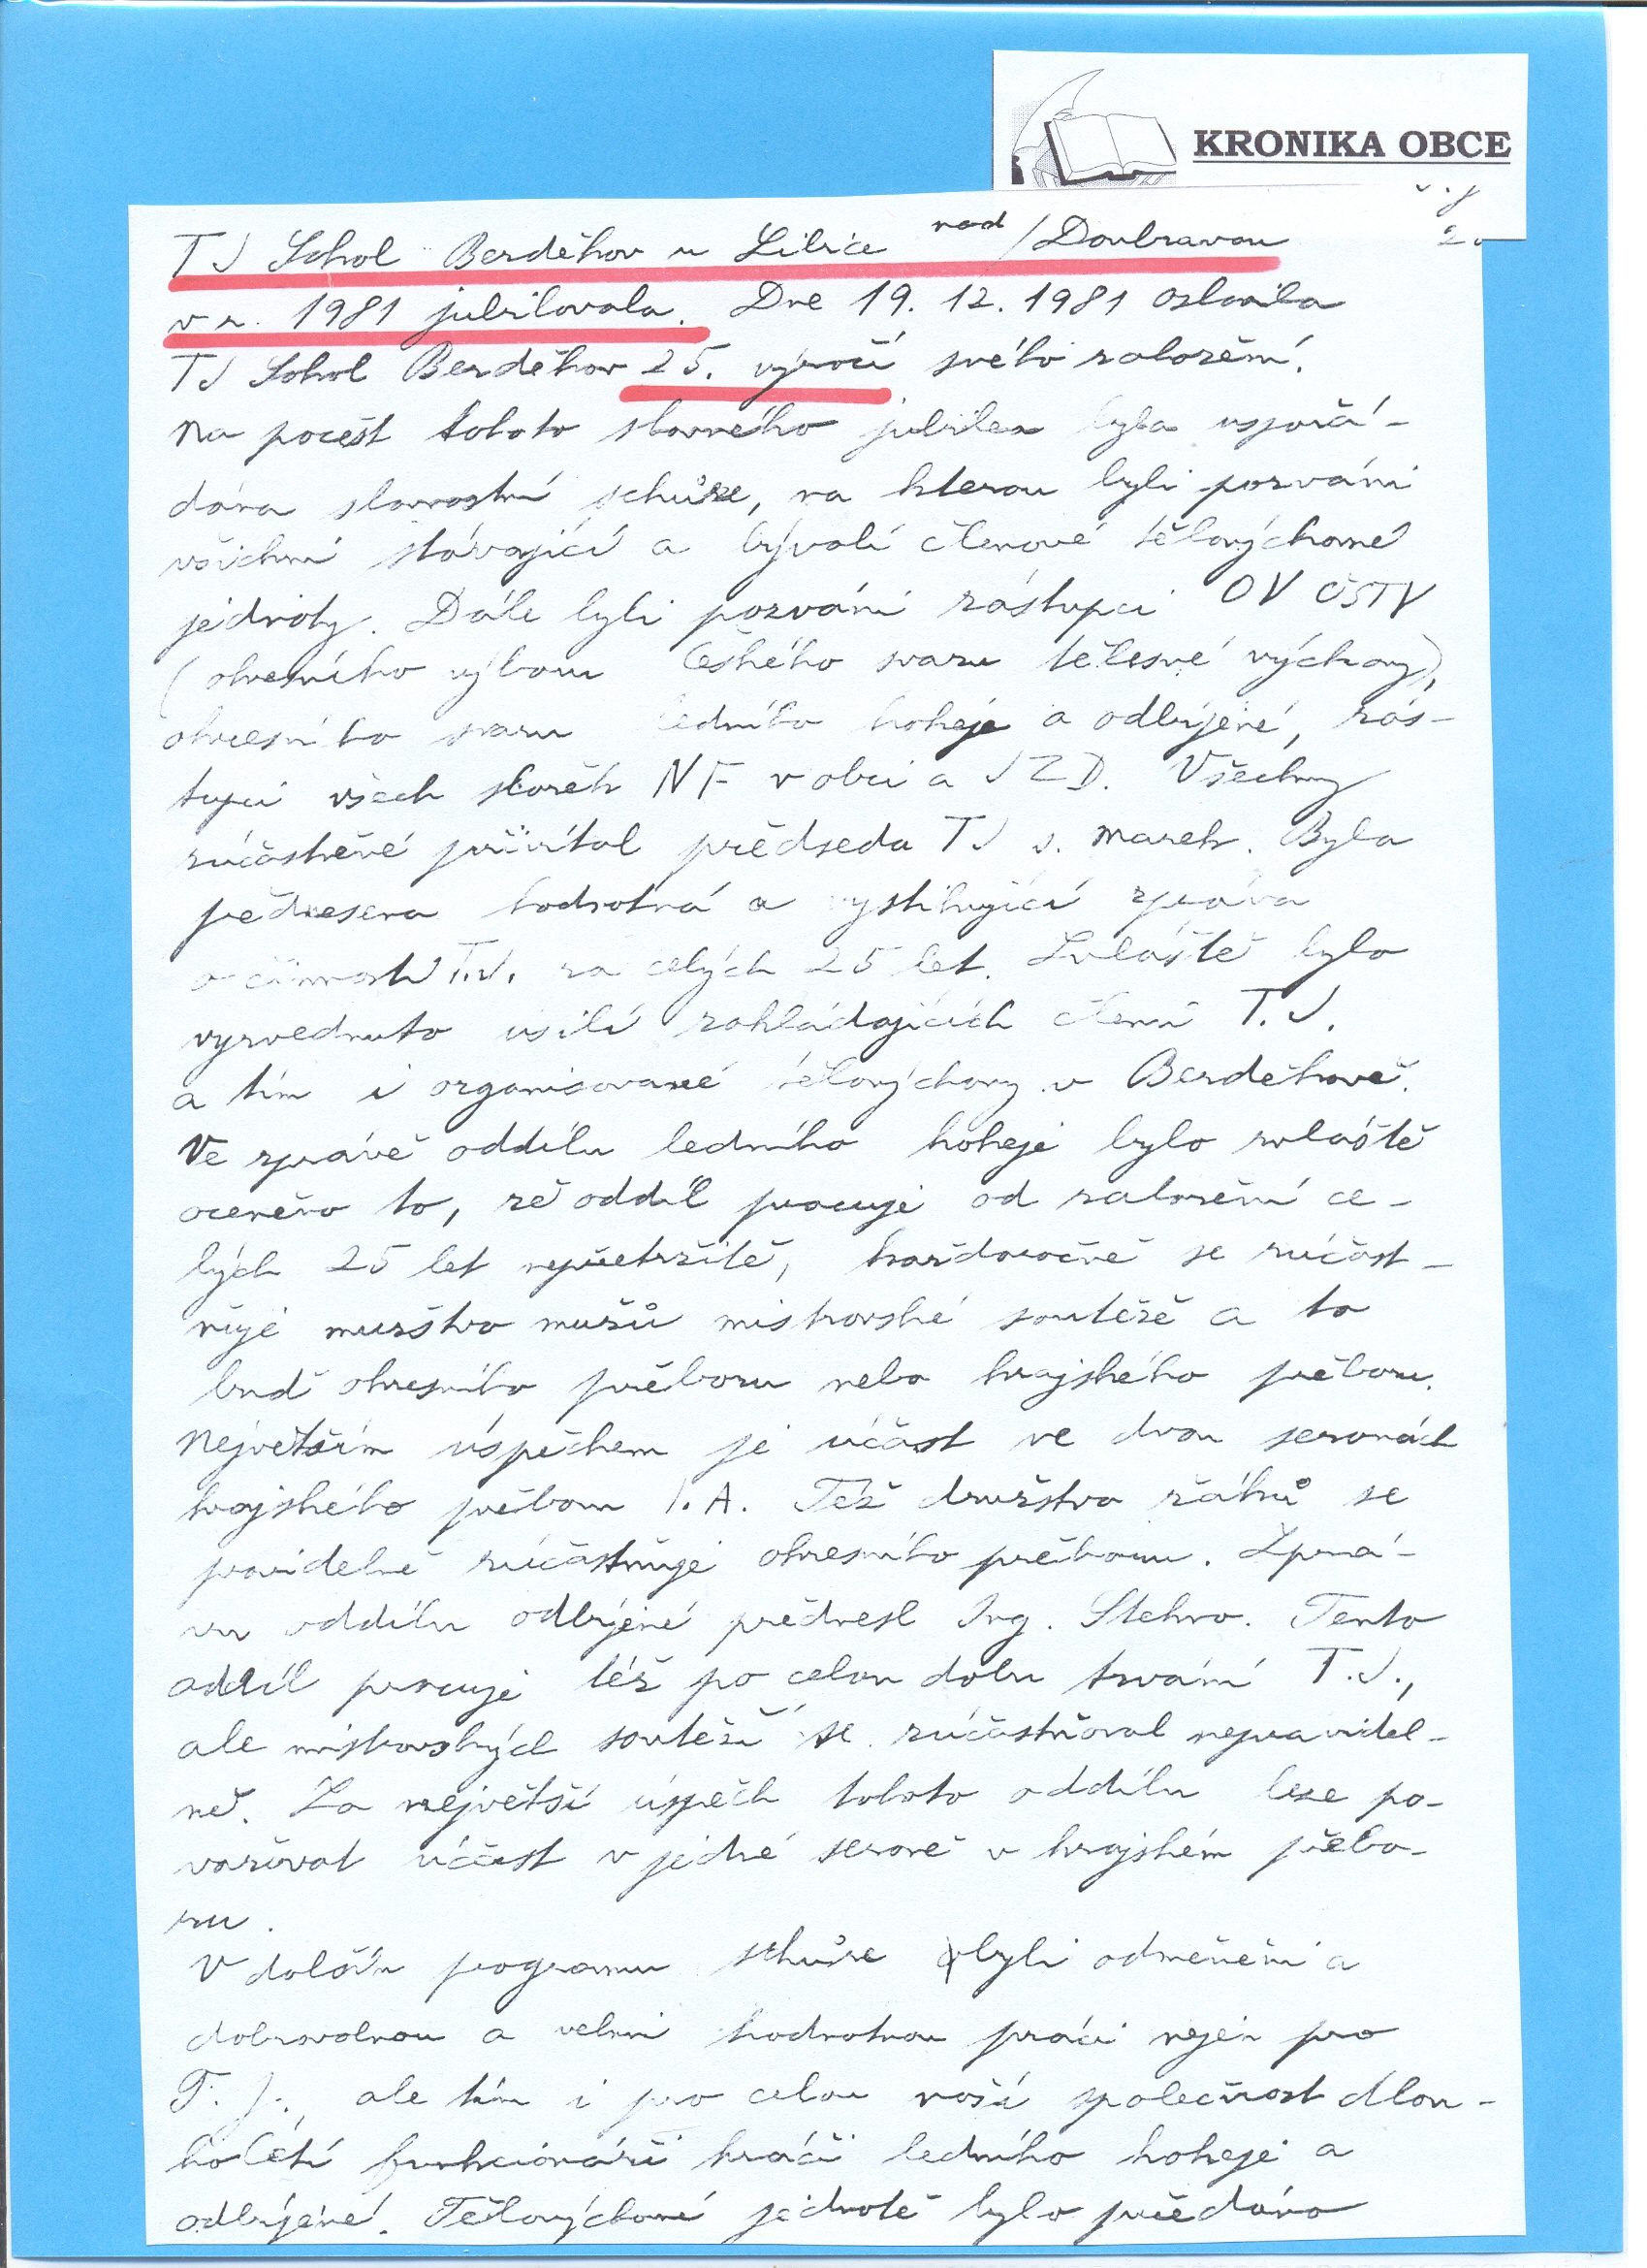 KRONIKA OBCE
TJ Sokol Bezděkov u Libice nad/Doubravou
v r. 1981 jubilovala. Dne 19. 12. 1981 oslavila
TJ Sokol Bezděkov 25. výročí svého založení.
Na počest tohoto slavného jubilea byla uspořá-
dána slavnostní schůze, na kterou byli pozváni
všichni stávající a bývalí členové tělovýchovné
jednoty. Dále byli pozváni zástupci OV ČSTV
(okresního výboru Českého svazu tělesné výchovy),
okresního svazu ledního hokeje a odbíjené, zás-
tupci všech složek NF v obci a JZD. Všechny
zúčastněné přivítal předseda TJ s. Marek. Byla
přednesena hodnotná a vystihující zpráva
o činnosti T.J. za celých 25 let. Zvláště bylo
vyzvednuto úsilí zakládajících členů T.J.
a tím i organisované tělovýchovy v Bezděkově.
Ve zprávě oddílu ledního hokeje bylo zvláště
oceněno to, že oddíl pracuje od založení ce-
lých 25 let nepřetržitě, každoročně se zúčast-
ňuje mužstvo mužů mistrovské soutěže a to
buď okresního přeboru nebo krajského přeboru.
Největším úspěchem je účast ve dvou sezonách
krajského přeboru I. A. Též družstvo žáků se
pravidelně zúčastňuje okresního přeboru. Zprá-
vu oddílu odbíjené přednesl Ing. Stehno. Tento
oddíl pracuje též po celou dobu trvání T.J.,
ale mistrovských soutěží se zúčastňoval nepravidel-
ně. Za největší úspěch tohoto oddílu lze po-
važovat účast v jedné sezoně v krajském přebo-
ru.
V dalším programu schůze byli odměněni a
dobrovolnou a velmi hodnotnou práci nejen pro
T.J., ale tím i pro celou naši společnost dlou-
holetí funkcionáři hráči ledního hokeje a
odbíjené. Tělovýchovné jednotě bylo předáno